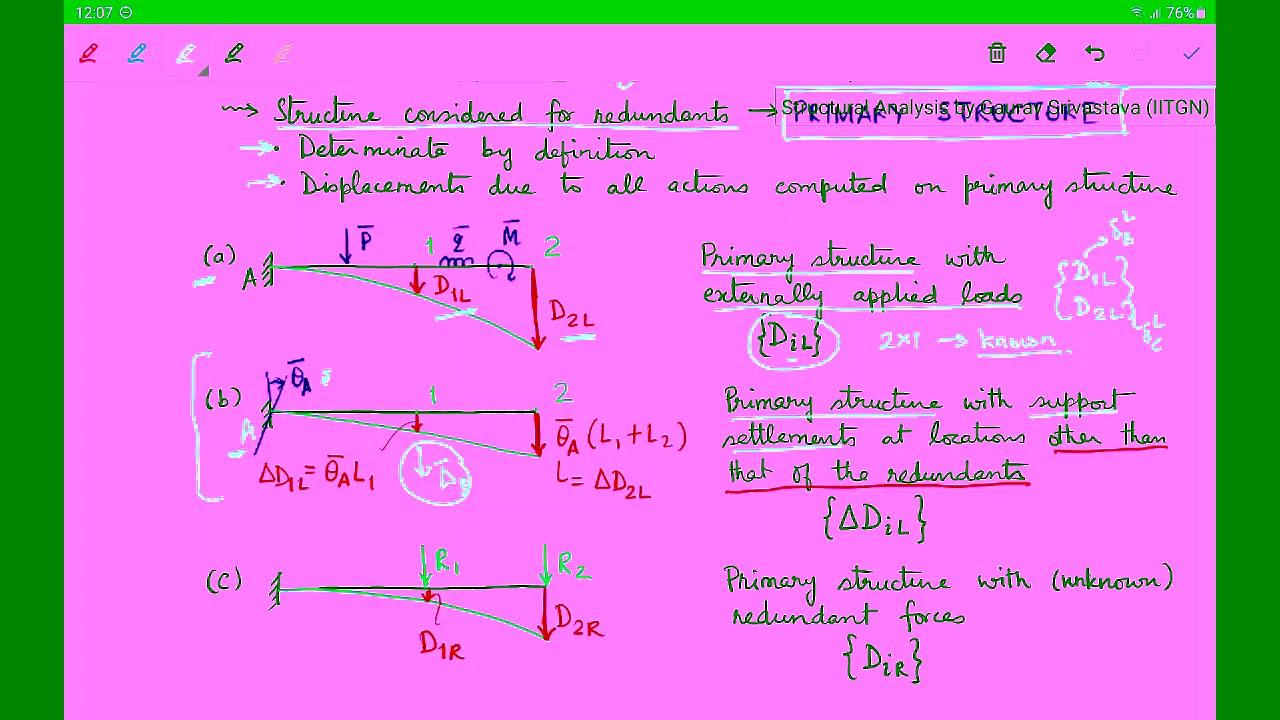 12:07 76%
Structure considered for redundants → PRIMARY STRUCTURE
Structural Analysis by Gaurav Srivastava (IITGN)
• Determinate by definition
• Displacements due to all actions computed on primary structure
(a) A P̅ 1 q̅ M̅ 2
D1L D2L
Primary structure with
externally applied loads
{DiL} 2×1 → known
{D1L
D2L}
(b) A θ̅A 1 2
ΔD1L = θ̅A L1
θ̅A (L1 + L2)
= ΔD2L
Primary structure with support
settlements at locations other than
that of the redundants
{ΔDiL}
(c) R1 R2
D1R D2R
Primary structure with (unknown)
redundant forces
{DiR}